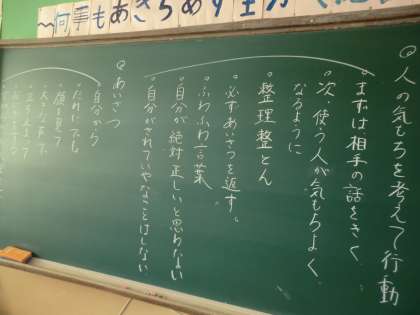 〜何事もあきらめず全力で
◎人の気もちを考えて行動
。まずは相手の話をきく。
。次、使う人が気もちよく
なるように
。整理整とん
。必ずあいさつを返す。
。ふわふわ言葉
。自分が絶対正しいと思わない
。自分がされていやなことはしない
◎あいさつ
。自分から
。だれにでも
。顔を見て